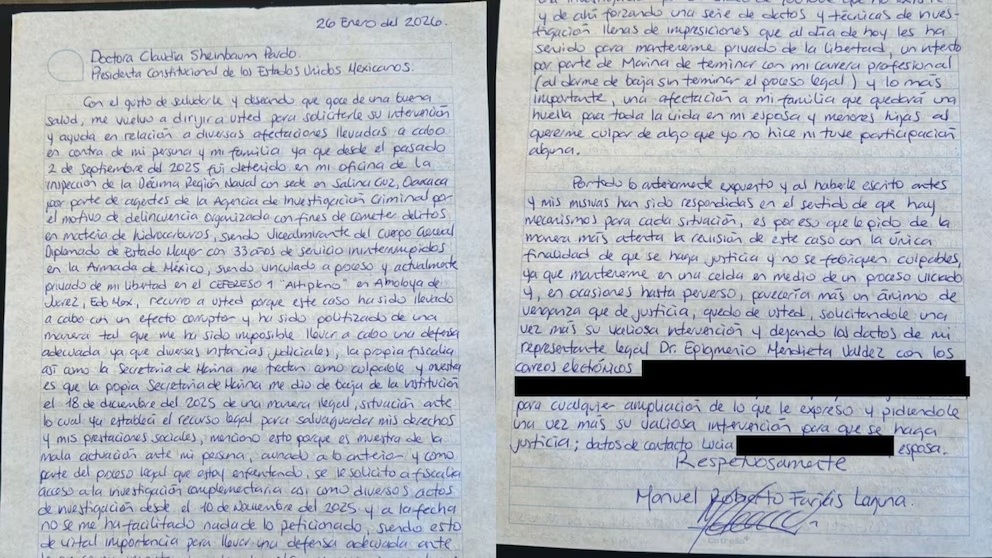 26 Enero del 2026.
Doctora Claudia Sheinbaum Pardo.
Presidenta Constitucional de los Estados Unidos Mexicanos.
Con el gusto de saludarle y deseando que goce de una buena
salud, me vuelvo a dirijir a usted para solicitarle su intervención
y ayuda en relación a diversas afectaciones llevadas a cabo
en contra de mi persona y mi familia ya que desde el pasado
2 de Septiembre del 2025 fui detenido en mi oficina de la
inspección de la Décima Región Naval con sede en Salina Cruz, Oaxaca
por parte de agentes de la Agencia de Investigación Criminal por
el motivo de delincuencia Organizada con fines de cometer delitos
en materia de hidrocarburos, siendo Vicealmirante del Cuerpo General
Diplomado de Estado Mayor con 33 años de servicio ininterrumpidos
en la Armada de México, siendo vinculado a proceso y actualmente
privado de mi libertad en el CEFERESO 1 "Altiplano" en Almoloya de
Juárez, Edo Mex, recurro a usted porque este caso ha sido llevado
a cabo con un efecto corruptor y ha sido politizado de una
manera tal que me ha sido imposible llevar a cabo una defensa
adecuada ya que diversas instancias judiciales, la propia fiscalia
así como la Secretaria de Marina me tratan como culpable y muestra
es que la propia Secretaria de Marina me dio de baja de la institución
el 18 de diciembre del 2025 de una manera ilegal, situación ante
lo cual ya establecí el recurso legal para salvaguardar mis derechos
y mis prestaciones sociales, menciono esto porque es muestra de la
mala actuación ante mi persona, aunado a lo anterior y como
parte del proceso legal que estoy enfrentando, se le solicito a fiscalia
acceso a la investigación complementaria así como diversos actos
de investigación desde el 10 de Noviembre del 2025 y a la fecha
no se me ha facilitado nada de lo peticionado, siendo esto
de vital importancia para llevar una defensa adecuada ante
y de ahí forzando una serie de datos y técnicas de inves-
tigación llenas de imprecisiones que al día de hoy les ha
servido para mantenerme privado de la libertad, un intento
por parte de Marina de terminar con mi carrera profesional
(al darme de baja sin terminar el proceso legal) y lo más
importante, una afectación a mi familia que quedará una
huella para toda la vida en mi esposa y menores hijas al
quererme culpar de algo que yo no hice ni tuve participación
alguna.
Por todo lo anteriormente expuesto y al haberle escrito antes
y mis misivas han sido respondidas en el sentido de que hay
mecanismos para cada situación, es por eso que le pido de la
manera más atenta la revisión de este caso con la única
finalidad de que se haga justicia y no se fabriquen culpables,
ya que mantenerme en una celda en medio de un proceso viciado
y, en ocasiones hasta perverso, parecería más un ánimo de
venganza que de justicia, quedo de usted, solicitandole una
vez más su valiosa intervención y dejando los datos de mi
representante legal Dr. Epigmenio Mendieta Valdez con los
correos electrónicos
para cualquier ampliación de lo que le expreso y pidiendole
una vez más su valiosa intervención para que se haga
justicia; datos de contacto Lucia esposa.
Respetuosamente
Manuel Roberto Farías Laguna.